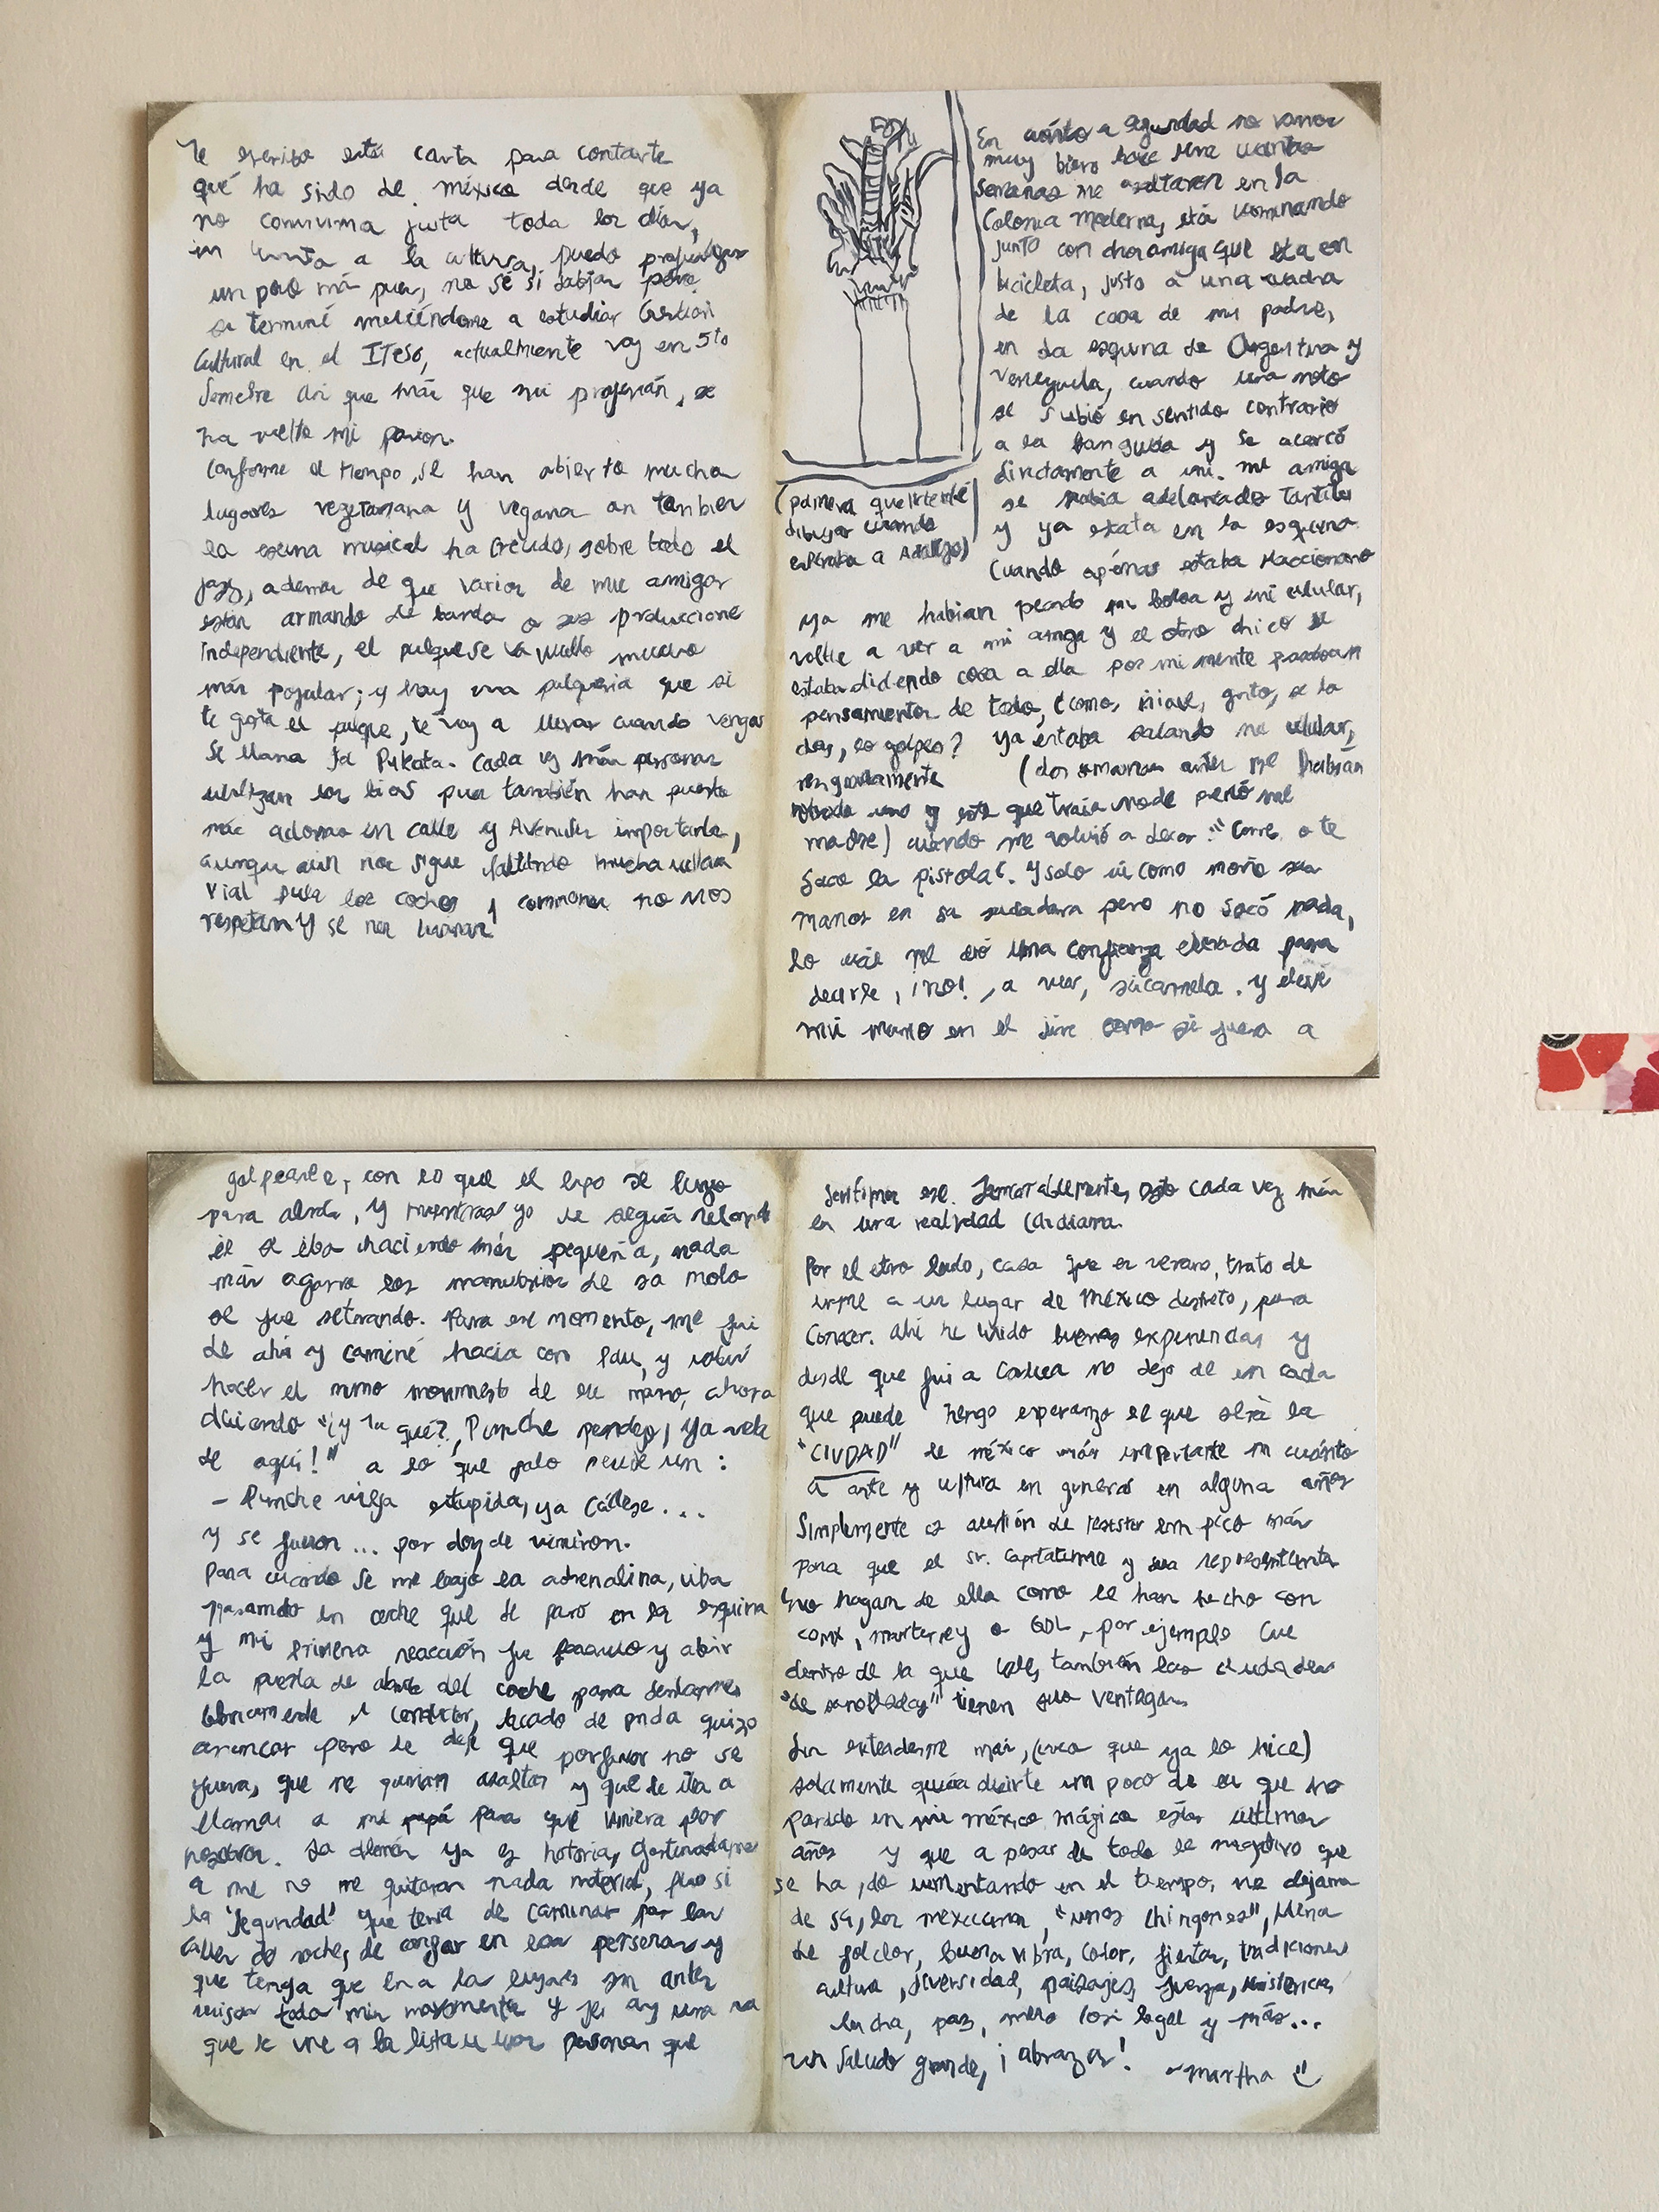 Te escribo esta carta para contarte
qué ha sido de méxico desde que ya
no convivimos juntas todos los días,
en cuanto a la cultura, puedo profundizar
un poco más pues, no sé si sabían pero
terminé metiéndome a estudiar Gestión
Cultural en el ITESO, actualmente voy en 5to
Semestre así que más que mi profesión, se
ha vuelto mi pasión.
Conforme el tiempo, se han abierto muchos
lugares vegetarianos y veganos también
la escena musical ha crecido, sobre todo el
jazz, además de que varios de mis amigos
están armando su banda o sus producciones
independientes, el pulque se va vuelto mucho
más popular; y hay una pulquería que si
te gusta el pulque, te voy a llevar cuando vengas
Se llama La Pukata. Cada vez más personas
utilizan las bicis pues también han puesto
más en calles y Avenidas importantes,
aunque aún nos sigue faltando mucha cultura
vial pues los coches y camiones no nos
respetan y se nos
En cuánto a seguridad no vamos
muy bien hace unas cuantas
semanas me asaltaron en la
Colonia Moderna, está caminando
junto con otra amiga que iba en
bicicleta, justo a una cuadra
de la casa de mi padre,
en la esquina de Argentina y
Venezuela, cuando una moto
se subió en sentido contrario
a la banqueta y se acercó
directamente a mi. mi amiga
se había adelantado tantito
y ya estaba en la esquina
(palmera que intenté
dibujar cuando
esperaba a)
Cuando apenas estaba reaccionando
ya me habian pedido mi bolsa y mi celular,
voltie a ver a mi amiga y el otro chico le
estaba diciendo cosas a ella por mi mente pasaban
pensamientos de todo, ¿corro, grito, se la
doy, lo golpeo? ya estaba sacando mi celular,
resignadamente (dos semanas antes me habían
robado uno y este que traía no de
madre) cuándo me volvió a decir: "Corre o te
saco la pistola". Y solo vi como movío sus
manos en su sudadera pero no sacó nada,
lo cuál me dió una confianza elevada para
decirle, ¡no!, a ver, sácamela. y elevé
mi mano en el aire como si fuera a
golpearle, con lo que el tipo se hizo
para atrás, y mientras yo le seguía retando
él se iba haciendo más pequeño, nada
más agarro los manubrios de su moto
se fue retirando. Para ese momento, me fui
de ahí y caminé hacia con Pau, y volví
hacer el mismo movimiento de mi mano, ahora
diciendo "¡¿y tu qué?, Pinche pendejo, ya vete
de aquí!" a lo que solo un:
- Pinche vieja estupida, ya Cállese...
y se fueron... por donde vinieron.
Para cuando se me bajó la adrenalina, iba
pasando un coche que se paró en la esquina
y mi primera reacción fue pararlo y abrir
la puerta de atrás del coche para sentarme,
obviamente el conductor, sacado de onda quizo
arrancar pero le dije que porfavor no se
fuera, que me querían asaltar y que le iba a
llamar a mi papá para que viniera por
nosotras. Lo demás ya es historia, afortunadamente
a me no me quitaron nada material, pero si
la "seguridad" que tenia de caminar por las
calles de noche, de confiar en las personas y
que tenga que ir a los lugares sin antes
revisar todos mis movimientos y soy una más
que se une a la lista de las personas que
sentimos eso. Lamentablemente, esto cada vez más
en una realidad Cotidiana.
Por el otro lado, cada que es verano, trato de
irme a un lugar de México distinto, para
Conocer. Ahí he tenido buenas experiencias y
desde que fui a Oaxaca no dejo de ir cada
que puedo tengo esperanza el que será la
"CIUDAD" de méxico más importante en cuánto
a arte y cultura en general en algunos años
Simplemente es cuestión de resistir un poco más
para que el Sr. Capitalismo y sus representantes
no hagan de ella como le han hecho con
CDMX, Monterrey o GDL, por ejemplo que
dentro de la que cabe, también las ciudades
"desarrolladas" tienen sus ventajas.
Sin extenderme más, (creo que ya lo hice)
solamente quería decirte un poco de lo que ha
pasado en mi méxico mágico estos ultimos
años y que a pesar de todo lo negativo que
se ha ido aumentando en el tiempo, no dejamos
de ser, los mexicanos, "unos chingones", llenos
de folclor, buena vibra, color, fiestas, tradiciones
cultura, diversidad, paisajes, fuerza, resistencia,
lucha, paz, mero casi legal y más...
un Saludo grande, ¡abrazos!
~martha